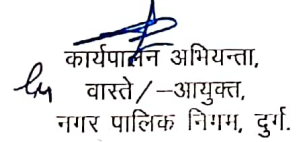 कार्यपालन अभियन्ता,
वास्ते/-आयुक्त,
नगर पालिक निगम, दुर्ग.